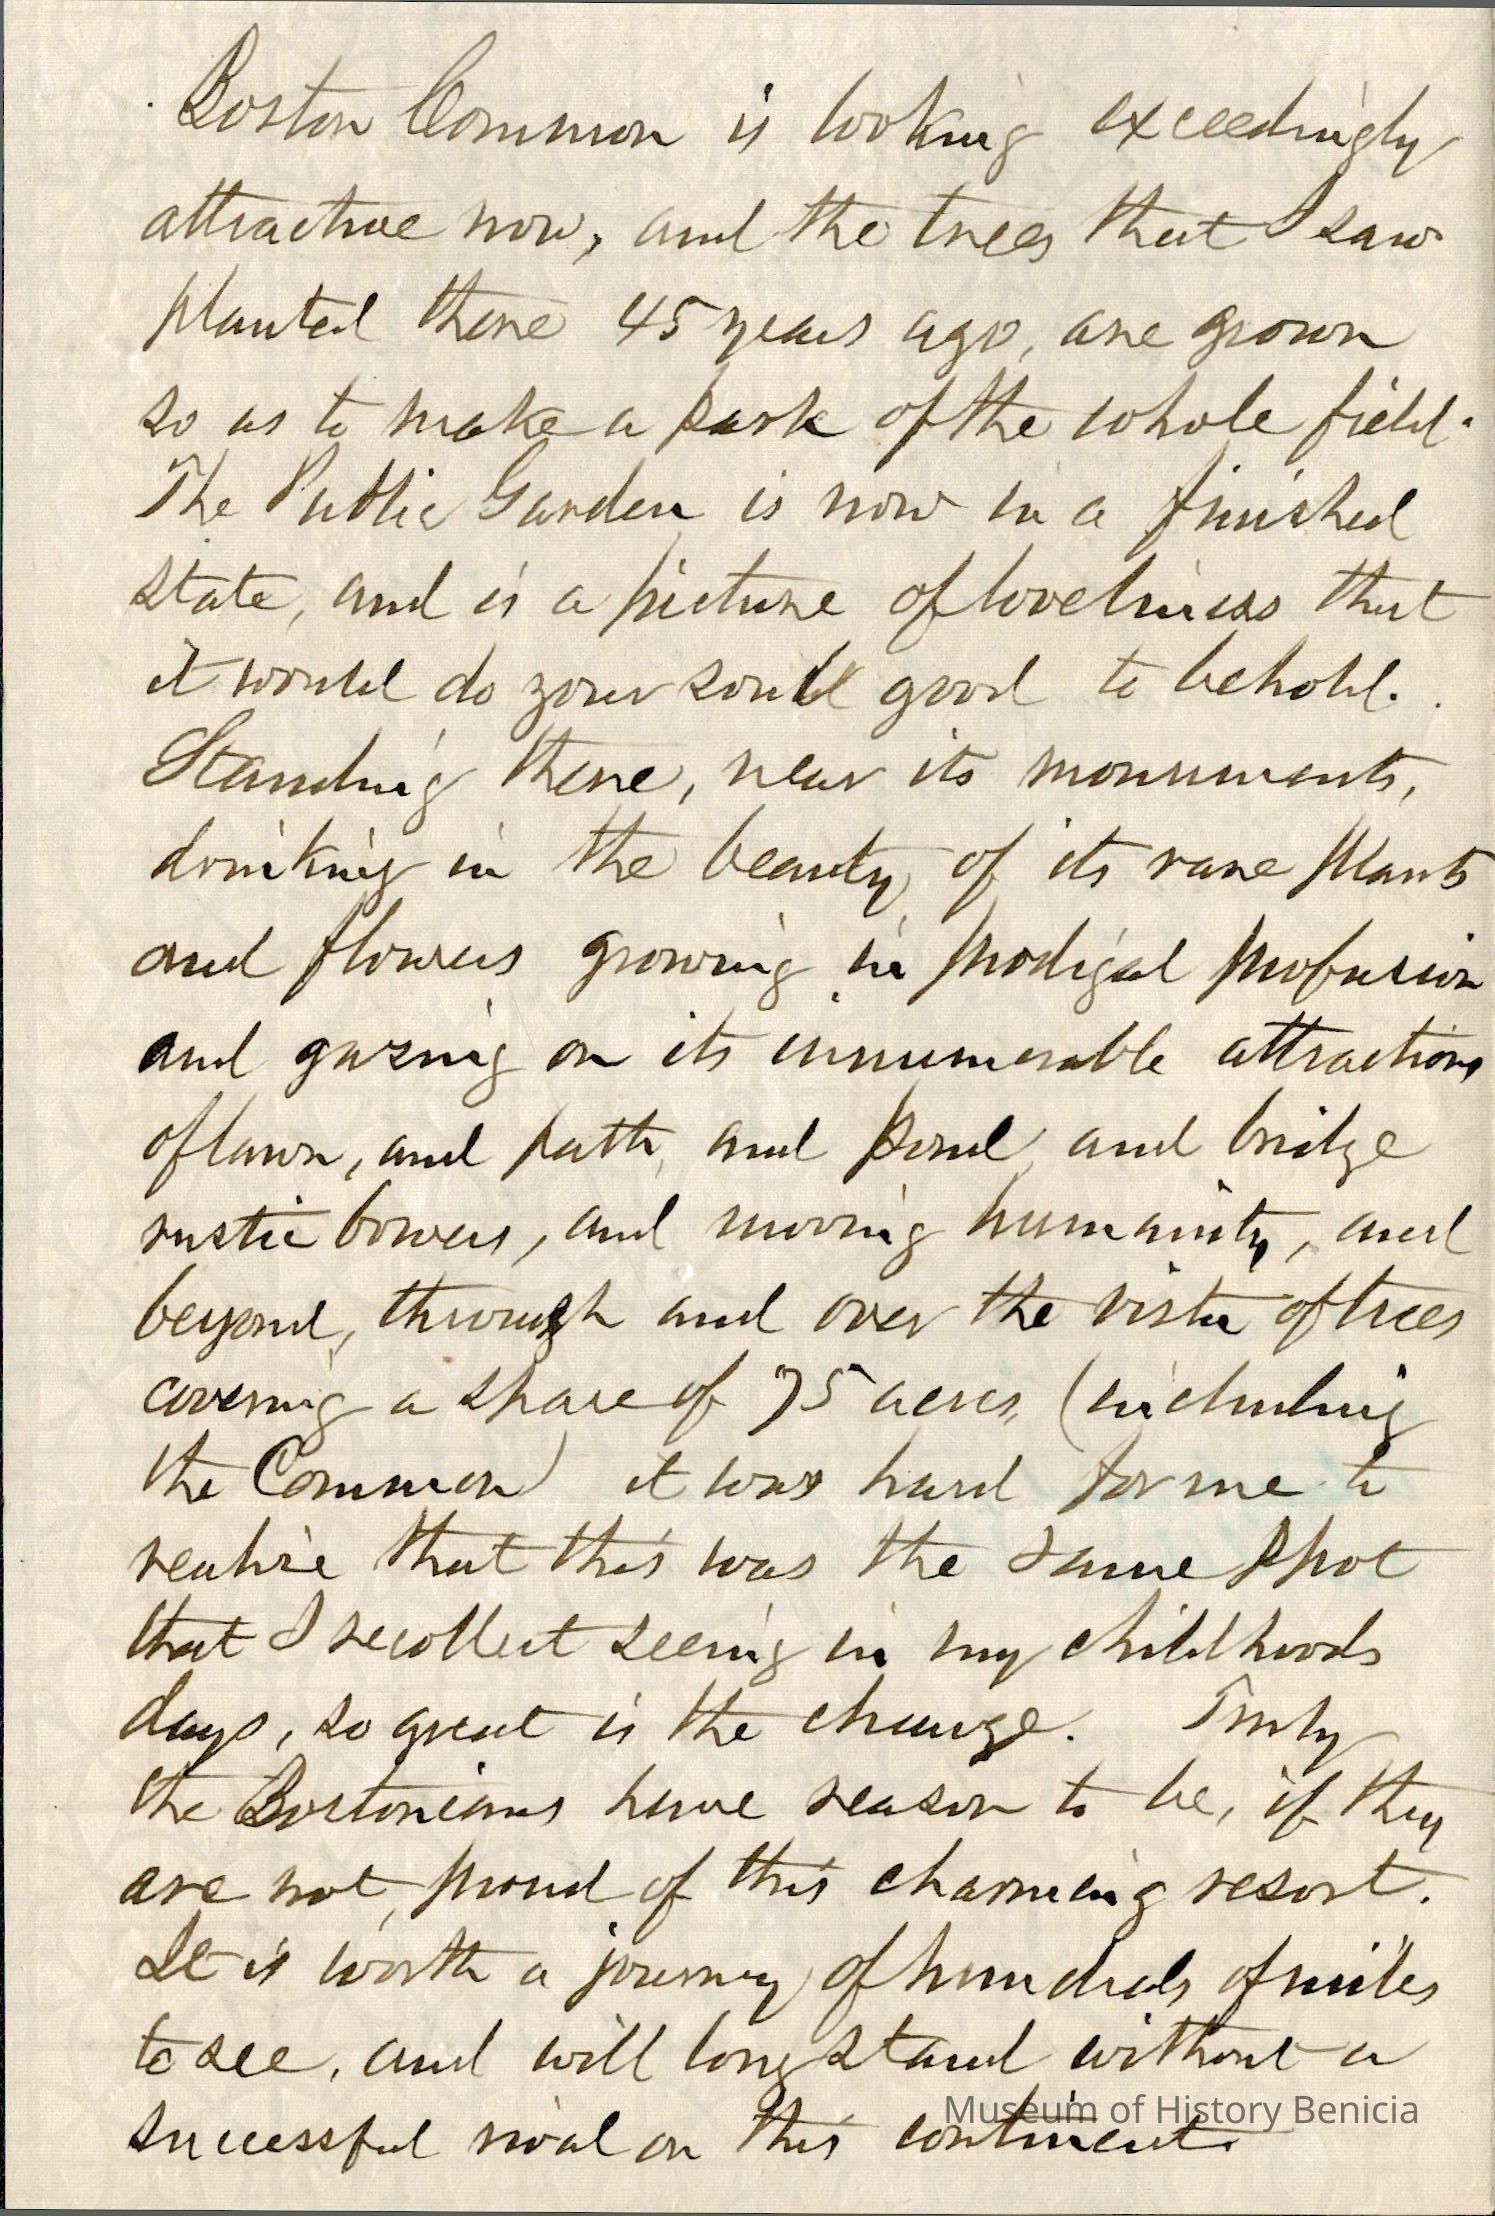 Boston Common is looking exceedingly
attractive now, and the trees that I saw
planted there 45 years ago, are grown
so as to make a park of the whole field.
The Public Garden is now in a finished
state, and is a picture of loveliness that
it would do your soul good to behold.
Standing there, near its monuments,
drinking in the beauty of its rare plants
and flowers growing in prodigal profusion
and gazing on its innumerable attractions
of lawn, and path, and pond, and bridge
rustic bowers, and moving humanity, and
beyond, through and over the vista of trees
covering a space of 75 acres, (including
the Common) it was hard for me to
realize that this was the same spot
that I recollect seeing in my childhoods
days, so great is the change. Truly
the Bostonians have reason to be, if they
are not, proud of this charming resort.
It is worth a journey of hundreds of miles
to see, and will long stand without a
successful rival on this continent.
Museum of History Benicia